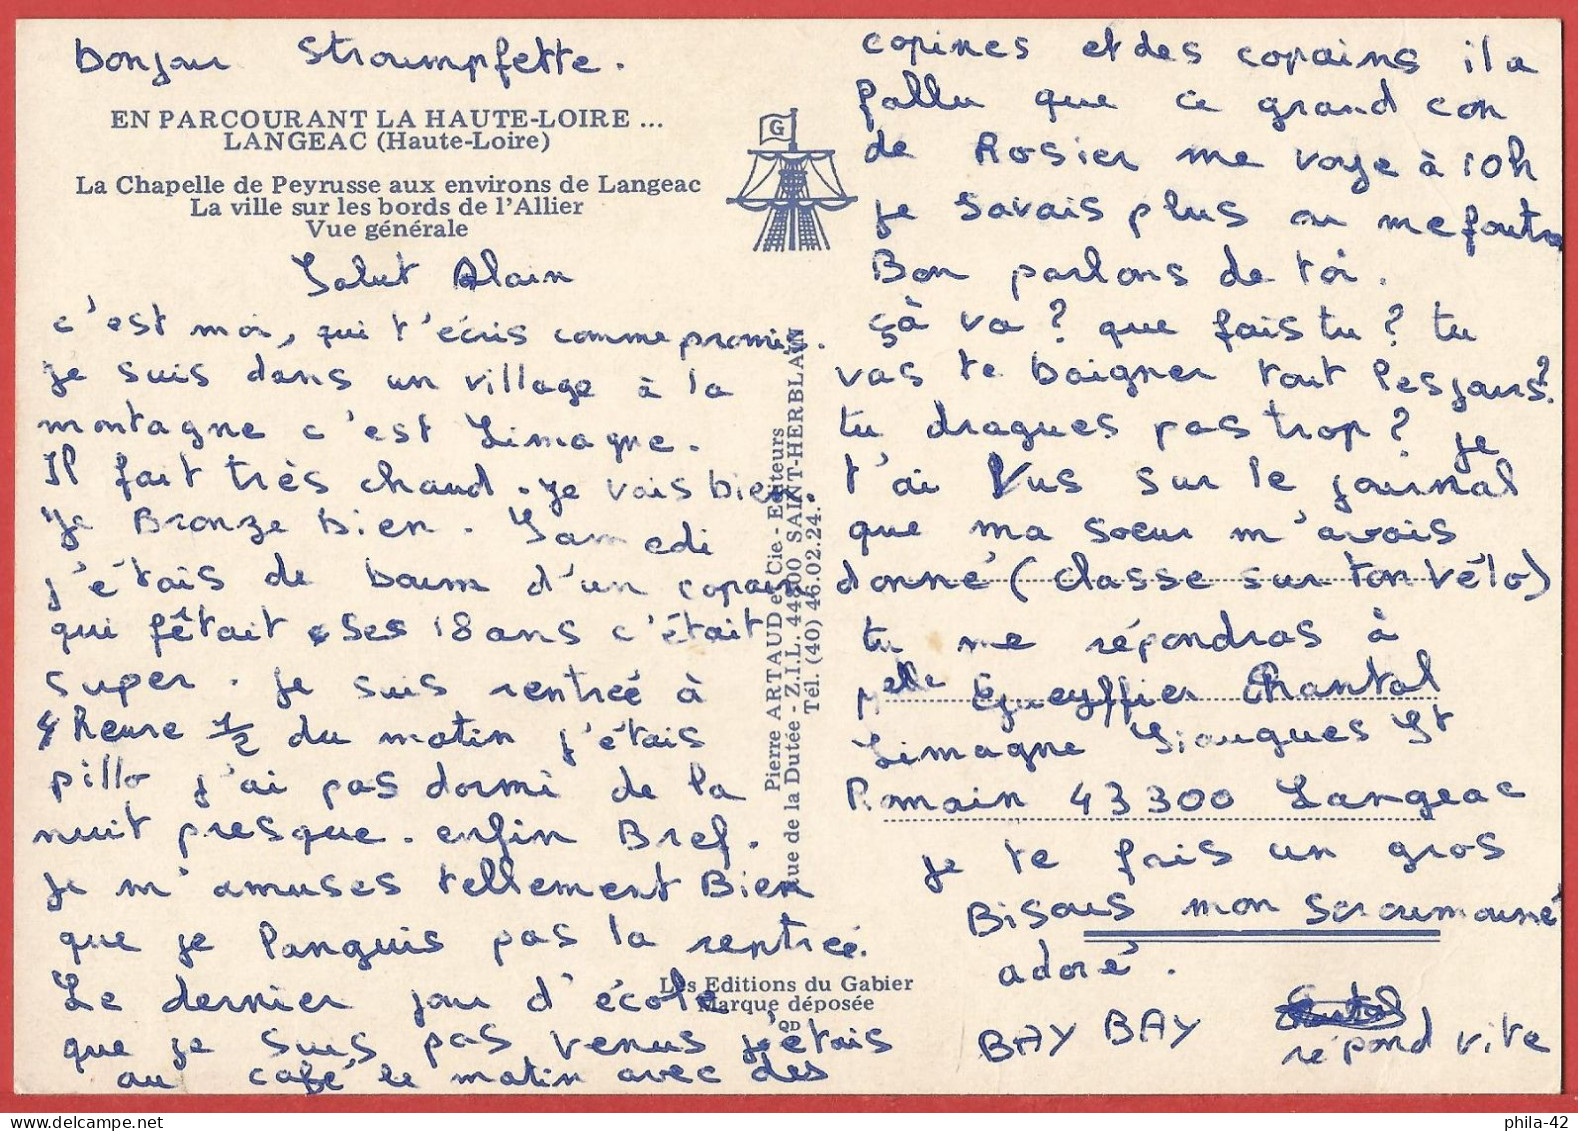 bonjour Stroumpfette.
EN PARCOURANT LA HAUTE-LOIRE ...
LANGEAC (Haute-Loire)
La Chapelle de Peyrusse aux environs de Langeac
La ville sur les bords de l'Allier
Vue générale
G
Salut Alain
c'est moi, qui t'écris comme promis.
je suis dans un village à la
montagne c'est Limagne.
Il fait très chaud. je vais bien.
je Bronze bien. Samedi
j'étais de boum d'un copain
qui fêtait ses 18 ans c'était
super. je suis rentreé à
4 heure 1/2 du matin j'étais
pillo j'ai pas dormi de la
nuit presque. enfin Bref.
je m'amuses tellement Bien
que je languis pas la rentreé.
Le dernier jour d'école
que je suis pas venus j'étais
au café le matin avec des
Pierre ARTAUD et Cie - Editeurs
rue de la Dutée - Z.I.L. 44800 SAINT-HERBLAIN
Tél. (40) 46.02.24.
Les Editions du Gabier
Marque déposée
copines et des copains il a
fallu que ce grand con
de Rosier me voye à 10h
je savais plus ou me foutre
Bon parlons de toi.
çà va ? que fais tu ? tu
vas te baigner tout les jours ?
tu dragues pas trop ? je
t'ai Vus sur le journal
que ma soeur m'avais
donné (classe sur ton vélo)
tu me répondras à
melle Gueyffier Chantal
Limagne Siaugues St
Romain 43300 Langeac
je te fais un gros
Bisous mon scroumouné
adoré.
BAY BAY
répond vite
phila-42